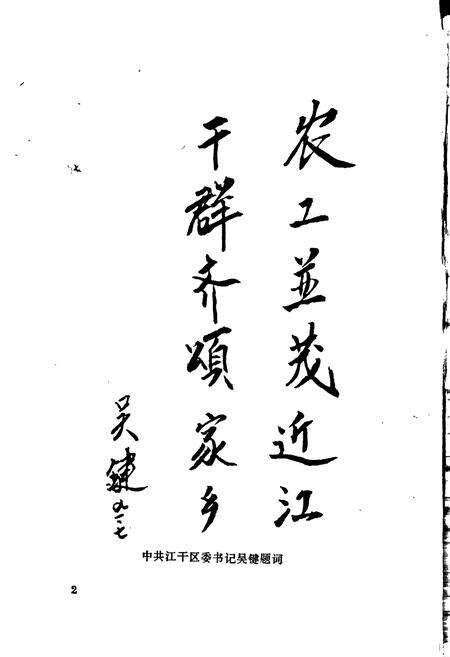 农工並茂近江
干群齐頌家乡
吴鍵
九一·七
中共江干区委书记吴键题词
2